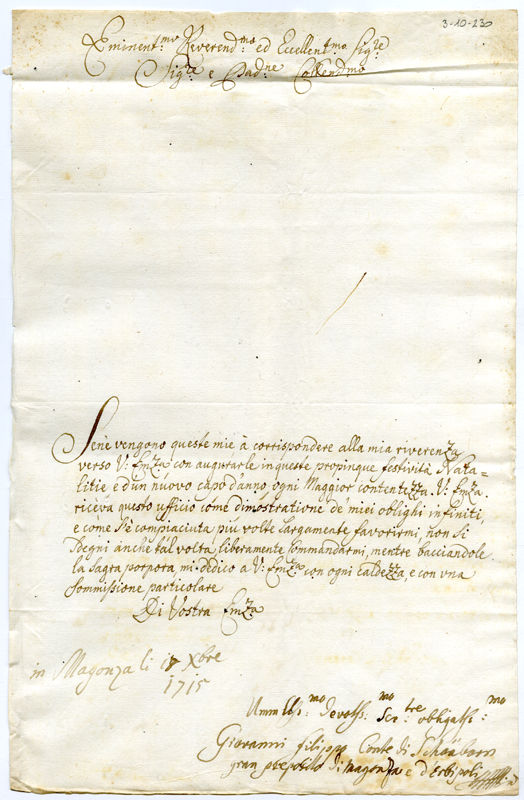 3-10-230
Eminent:mo Reverend:mo ed Eccellent:mo Sig:re
Sig:re e Pad:ne Collendmo
Sene vengono queste mie à corrispondere alla mia riverenza
verso V: Emza con augurarle in queste propinque festività Nata=
litie e d'un nuovo capo d'anno ogni Maggior contentezza. V: Emza.
riceva questo ufficio come dimostratione de miei oblighi infiniti,
e come s'è compiaciuta più volte largamente favorirmi, non si
sdegni anche tal volta liberamente commandarmi, mentre bacciandole
la sagra porpora mi dedico a V: Emza con ogni caldezza e con una
sommissione particolare
Di Vostra Emza
in Magonza li Xbre
1715
Umiliss:mo devotss:mo Ser:tre obligatss:mo
Giovanni Filippo Conte di Schönborn
gran preposito di Magonza e d'Erbipoli